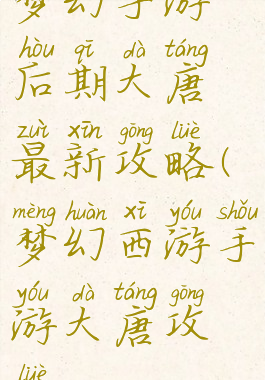 梦幻手游
hòu qī dà táng
后期大唐
zuì xīn gōng lüè
最新攻略(
mèng huàn xī yóu shǒu
梦幻西游手
yóu dà táng gōng
游大唐攻
lüè